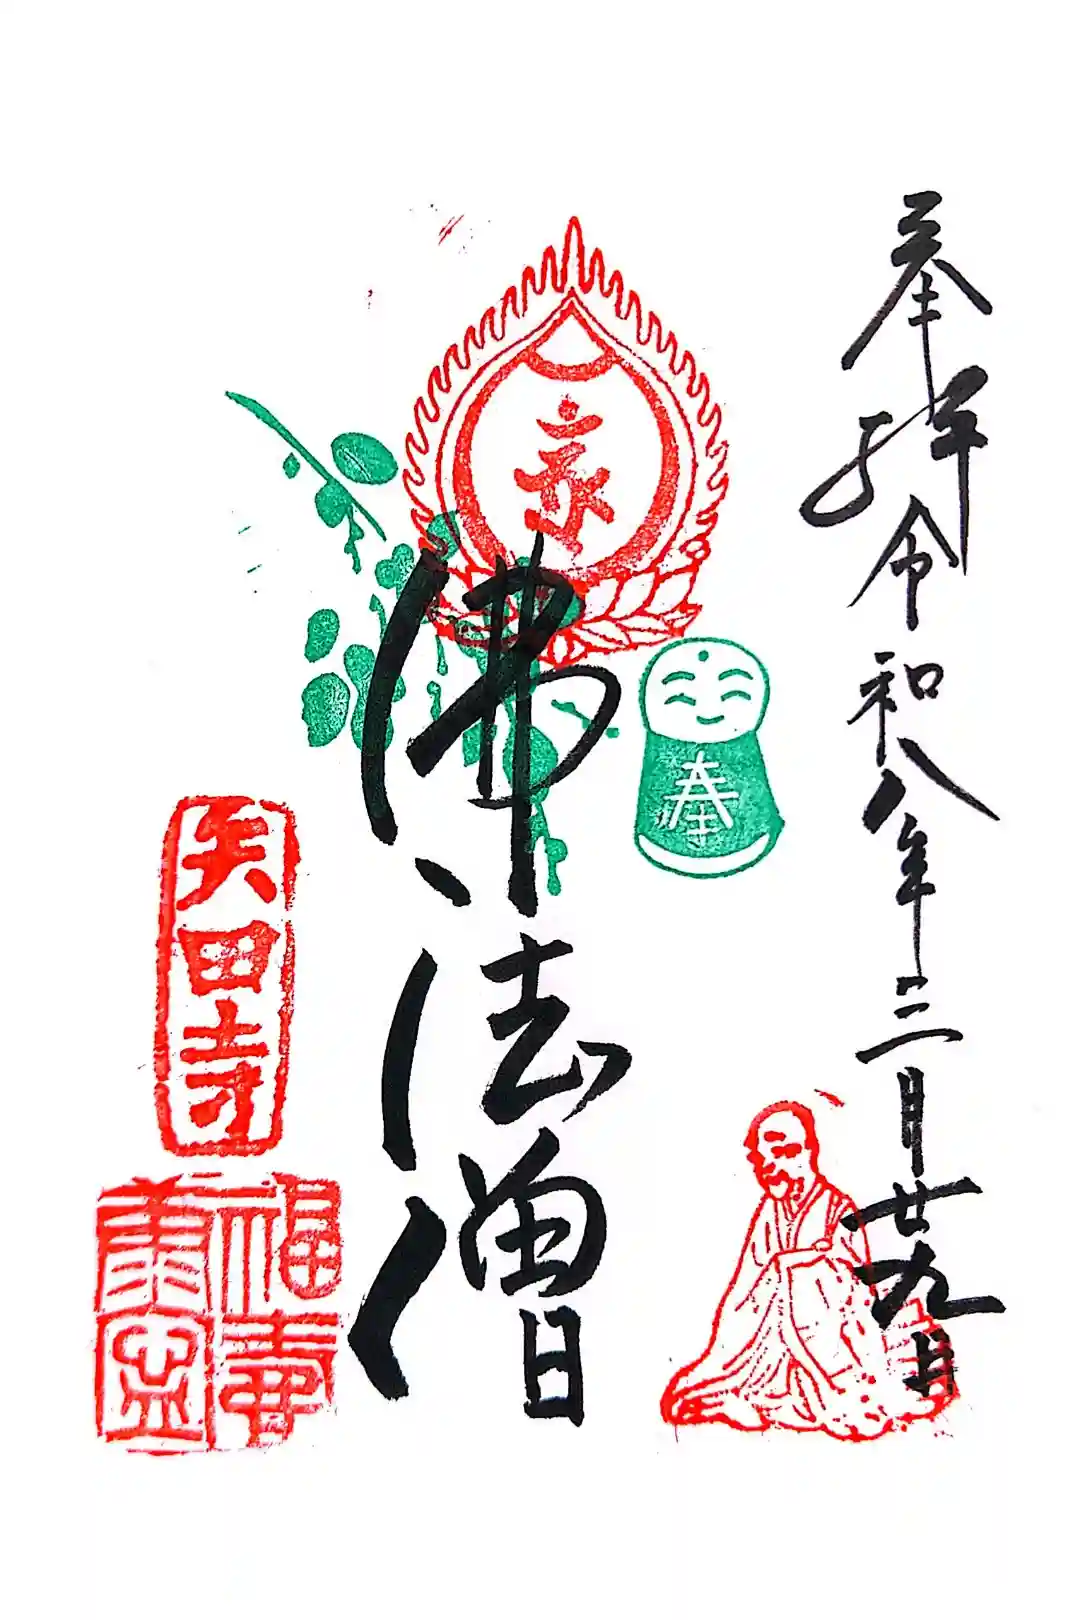 奉拝
令和八年三月廿九日
奉
佛法僧
矢田寺
福壽